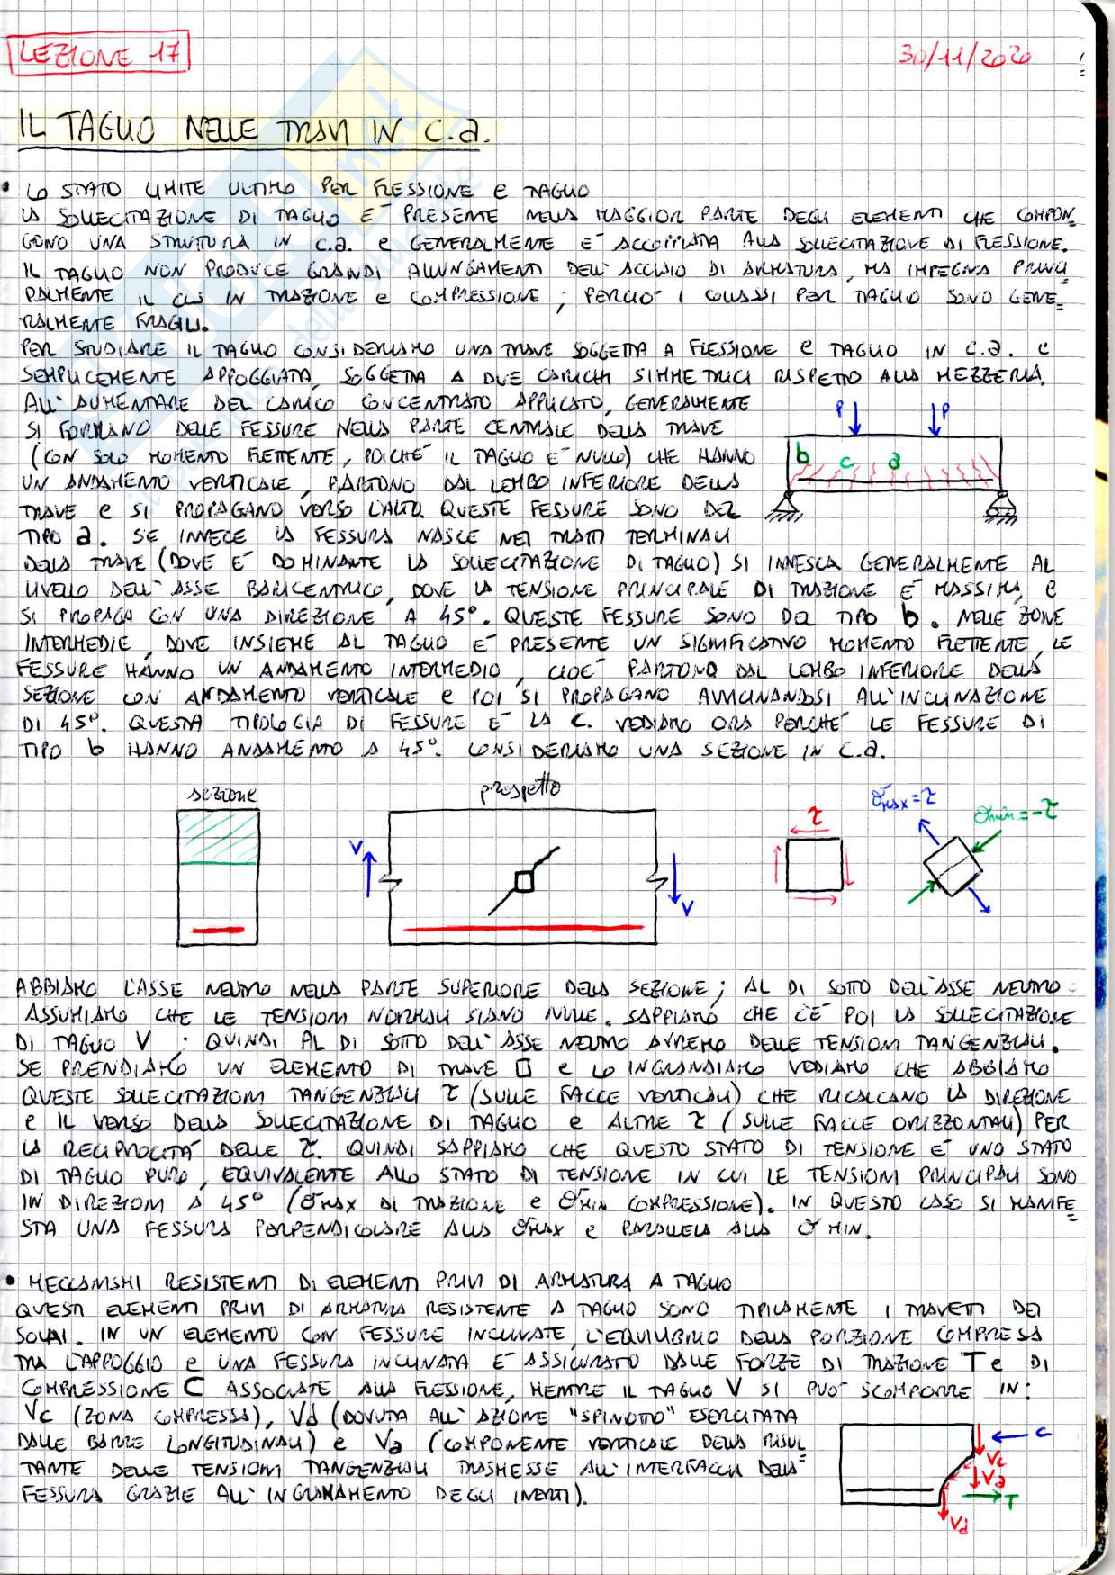 LEZIONE 17
30/11/2020
IL TAGLIO NELLE TRAVI IN C.a.
• LO STATO LIMITE ULTIMO PER FLESSIONE E TAGLIO
LA SOLLECITAZIONE DI TAGLIO E' PRESENTE NELLA MAGGIOR PARTE DEGLI ELEMENTI CHE COMPON-
GONO UNA STRUTTURA IN C.a. E GENERALMENTE E' ACCOPPIATA ALLA SOLLECITAZIONE DI FLESSIONE.
IL TAGLIO NON PRODUCE GRANDI ALLUNGAMENTI DELL'ACCIAIO DI ARMATURA, MA IMPEGNA PRINCI
PALMENTE IL CLS IN TRAZIONE E COMPRESSIONE; PERCIO' I COLLASSI PER TAGLIO SONO GENE=
RALMENTE FRAGILI.
PER STUDIARE IL TAGLIO CONSIDERIAMO UNA TRAVE SOGGETTA A FLESSIONE E TAGLIO IN C.a. E
SEMPLICEMENTE APPOGGIATA, SOGGETTA A DUE CARICHI SIMMETRICI RISPETTO ALLA MEZZERIA.
ALL'AUMENTARE DEL CARICO CONCENTRATO APPLICATO, GENERALMENTE
SI FORMANO DELLE FESSURE NELLA PARTE CENTRALE DELLA TRAVE
(CON SOLO MOMENTO FLETTENTE, POICHE' IL TAGLIO E' NULLO) CHE HANNO
UN ANDAMENTO VERTICALE, PARTONO DAL LEMBO INFERIORE DELLA
TRAVE E SI PROPAGANO VERSO L'ALTO. QUESTE FESSURE SONO DEL
TIPO a. SE INVECE LA FESSURA NASCE NEI TRATTI TERMINALI
P P
b c a
DELLA TRAVE (DOVE E' DOMINANTE LA SOLLECITAZIONE DI TAGLIO) SI INNESCA GENERALMENTE AL
LIVELLO DELL'ASSE BARICENTRICO, DOVE LA TENSIONE PRINCIPALE DI TRAZIONE E' MASSIMA, E
SI PROPAGA CON UNA DIREZIONE A 45°. QUESTE FESSURE SONO DEL TIPO b. NELLE ZONE
INTERMEDIE, DOVE INSIEME AL TAGLIO E' PRESENTE UN SIGNIFICATIVO MOMENTO FLETTENTE, LE
FESSURE HANNO UN ANDAMENTO INTERMEDIO, CIOE' PARTONO DAL LEMBO INFERIORE DELLA
SEZIONE CON ANDAMENTO VERTICALE E POI SI PROPAGANO AVVICINANDOSI ALL'INCLINAZIONE
DI 45°. QUESTA TIPOLOGIA DI FESSURE E' LA C. VEDIAMO ORA PERCHE' LE FESSURE DI
TIPO b HANNO ANDAMENTO A 45°. CONSIDERIAMO UNA SEZIONE IN C.a.
sezione
prospetto
V
V
τ
σmax=τ
σmin=-τ
ABBIAMO L'ASSE NEUTRO NELLA PARTE SUPERIORE DELLA SEZIONE; AL DI SOTTO DELL'ASSE NEUTRO
ASSUMIAMO CHE LE TENSIONI NORMALI SIANO NULLE. SAPPIAMO CHE C'E' POI LA SOLLECITAZIONE
DI TAGLIO V; QUINDI AL DI SOTTO DELL'ASSE NEUTRO AVREMO DELLE TENSIONI TANGENZIALI.
SE PRENDIAMO UN ELEMENTO DI TRAVE □ E LO INGRANDIAMO VEDIAMO CHE ABBIAMO
QUESTE SOLLECITAZIONI TANGENZIALI τ (SULLE FACCE VERTICALI) CHE RICALCANO LA DIREZIONE
E IL VERSO DELLA SOLLECITAZIONE DI TAGLIO E ALTRE τ (SULLE FACCE ORIZZONTALI) PER
LA RECIPROCITA' DELLE τ. QUINDI SAPPIAMO CHE QUESTO STATO DI TENSIONE E' UNO STATO
DI TAGLIO PURO, EQUIVALENTE ALLO STATO DI TENSIONE IN CUI LE TENSIONI PRINCIPALI SONO
IN DIREZIONI A 45° (σMAX DI TRAZIONE E σMIN COMPRESSIONE). IN QUESTO CASO SI MANIFE=
STA UNA FESSURA PERPENDICOLARE ALLA σMAX E PARALLELA ALLA σMIN.
• MECCANISMI RESISTENTI DI ELEMENTI PRIVI DI ARMATURA A TAGLIO
QUESTI ELEMENTI PRIVI DI ARMATURA RESISTENTE A TAGLIO SONO TIPICAMENTE I TRAVETTI DEI
SOLAI. IN UN ELEMENTO CON FESSURE INCLINATE, L'EQUILIBRIO DELLA PORZIONE COMPRESA
TRA L'APPOGGIO E UNA FESSURA INCLINATA E' ASSICURATO DALLE FORZE DI TRAZIONE T E DI
COMPRESSIONE C ASSOCIATE ALLA FLESSIONE, MENTRE IL TAGLIO V SI PUO' SCOMPORRE IN:
Vc (ZONA COMPRESSA), Vd (DOVUTA ALL'AZIONE "SPINOTTO" ESERCITATA
DALLE BARRE LONGITUDINALI) E Va (COMPONENTE VERTICALE DELLA RISUL=
TANTE DELLE TENSIONI TANGENZIALI TRASMESSE ALL'INTERFACCIA DELLA
FESSURA GRAZIE ALL'INGRANAMENTO DEGLI INERTI).
C
Vc
Va
T
Vd